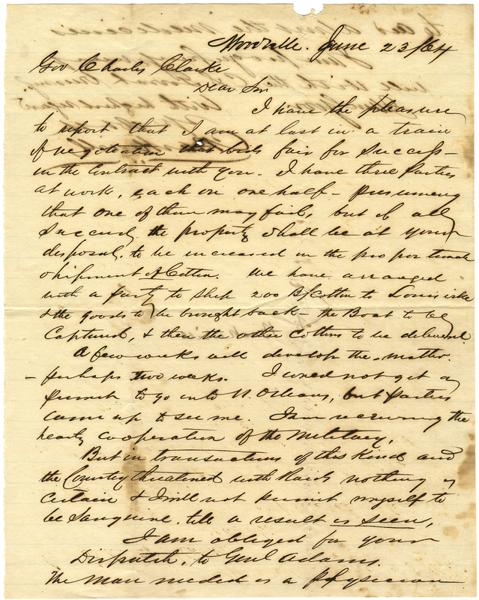 Woodville. June 23/64
Gov Charles Clarke
Dear Sir
I have the pleasure
to report that I am at last in a train
of negotiation that bids fair for success
in the Contract with you. I have three Parties
at work, each on one half - presuming
that one of them may fail, but if all
succeed, the property shall be at your
disposal, to be increased in the proportional
shipment of Cotton. We have arranged
with a party to ship 200 B/Cotton to
& the goods to be brought back - the Boat to be
Captured, & then the other Cotton to be delivered.
A few weeks will develop the matter.
- perhaps two weeks. I could not get a
permit to go into N. Orleans, but parties
came up to see me. I am receiving the
hearty co-operation of the Military,
But in transactions of this Kind and
the Country threatened with Raids nothing is
certain & I will not permit myself to
be Sanguine, till a result is seen,
I am obliged for your
Dispatch, to Genl Adams.
The man needed is a Physician